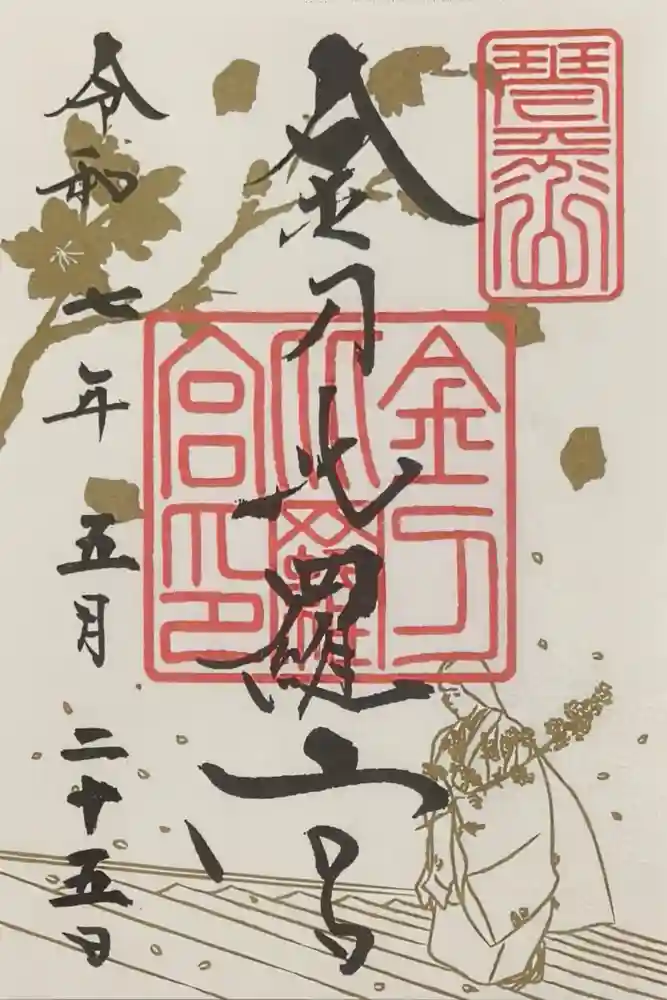 琴平山
金刀比羅宮
金刀
比羅
宮印
令和七年五月二十五日